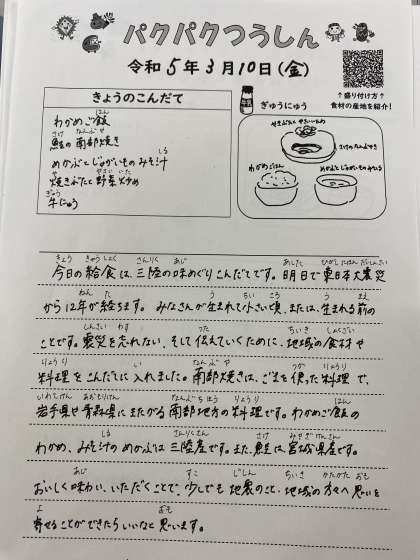 パクパクつうしん
令和5年3月10日(金)
↑盛り付け方↑
食材の産地を紹介!
きょうのこんだて
わかめご飯
鮭の南部焼き
めかぶとじゃがいものみそ汁
焼きぶたと野菜炒め
牛にゅう
ぎゅうにゅう
やきぶたとやさいいため
さけのなんぶやき
わかめごはん
めかぶとじゃがいものみそしる
今日の給食は、三陸の味めぐりこんだてです。明日で東日本大震災
から12年が経ちます。みなさんが生まれて小さい頃、または、生まれる前の
ことです。震災を忘れない、そして伝えていくために、地域の食材や
料理をこんだてに入れました。南部焼きは、ごまを使った料理で、
岩手県や青森県にまたがる南部地方の料理です。わかめご飯の
わかめ、みそ汁のめかぶは三陸産です。また、鮭は宮城県産です。
おいしく味わい、いただくことで、少しでも地震のこと、地域の方々へ思いを
寄せることができたらいいなと思います。